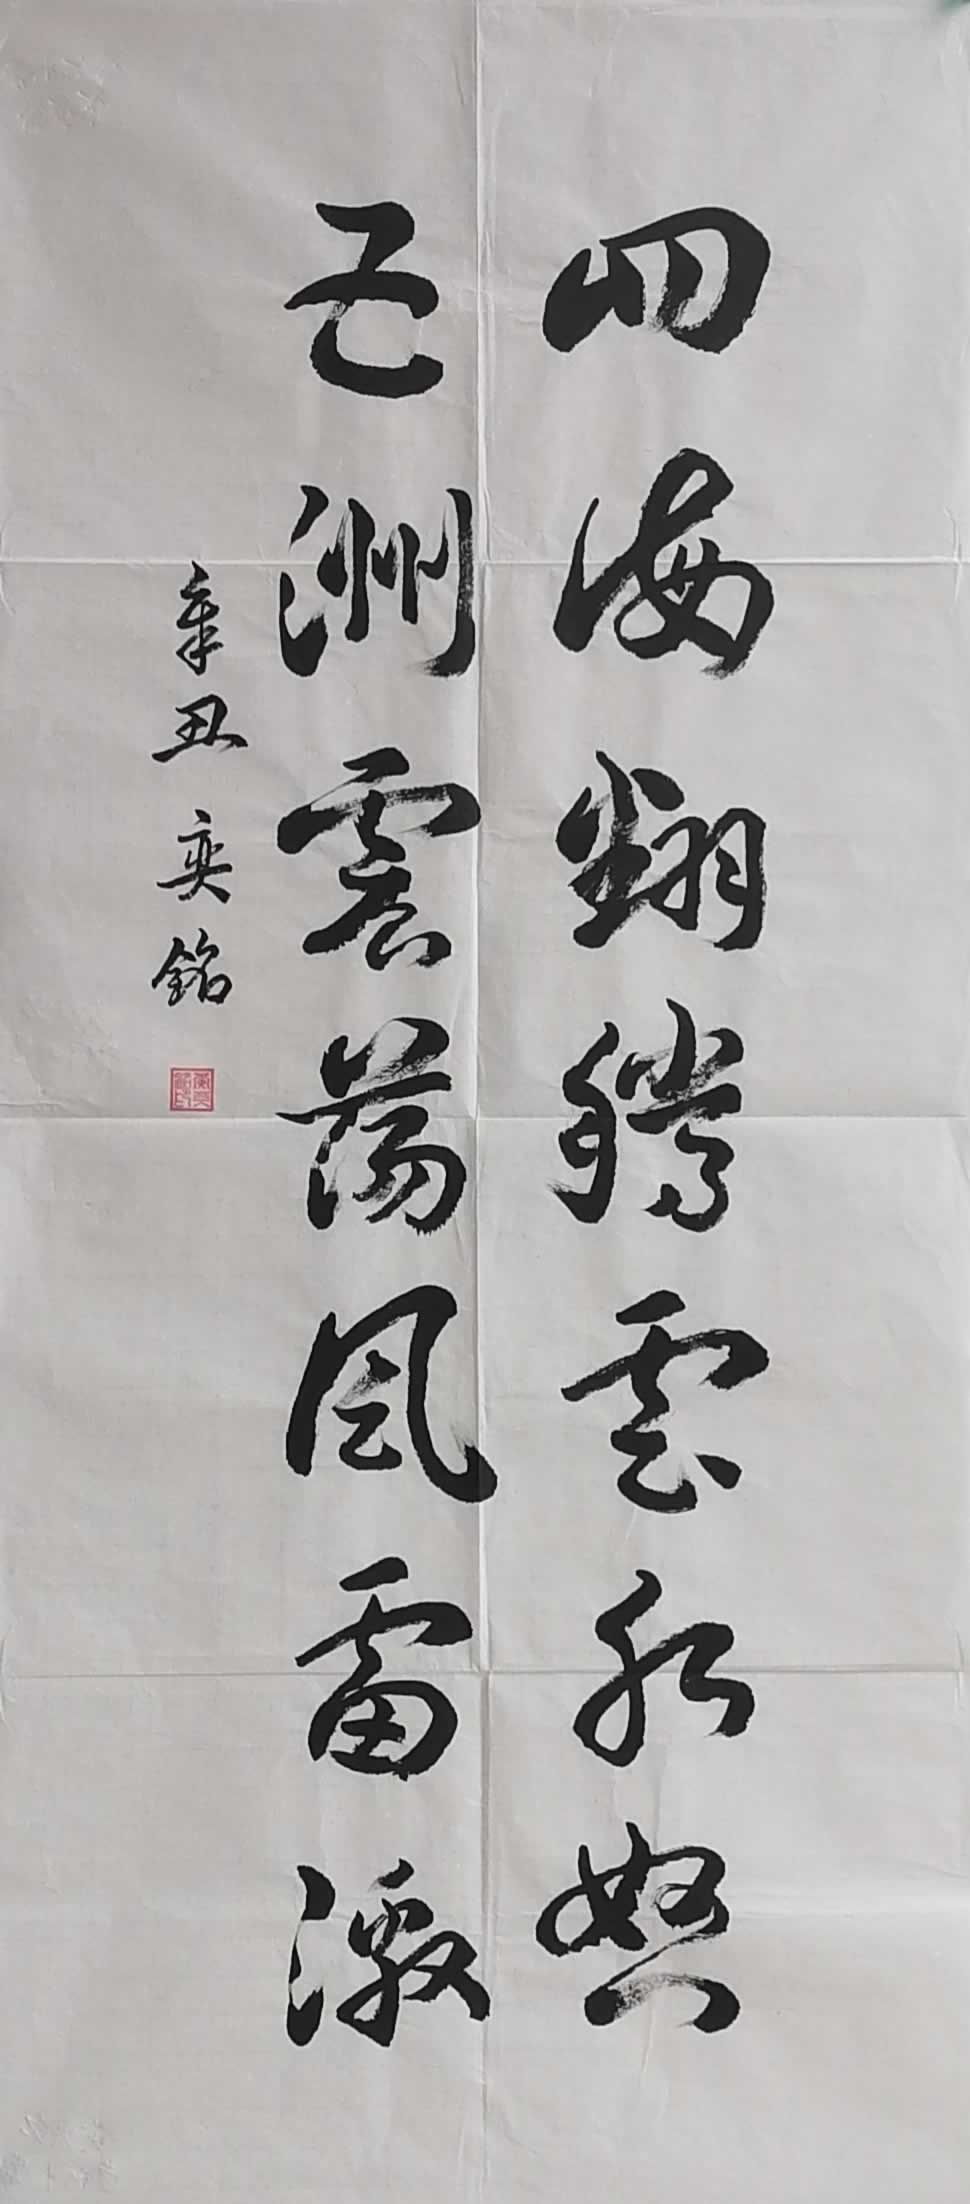 四海翻騰雲水怒
五洲震蕩風雷激
辛丑 奕銘